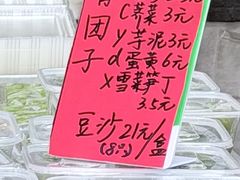 团子
C荠菜3元
y芋泥3元
d蛋黄6元
X雪菜笋丁
3.5元
豆沙21元/盒
(8只)